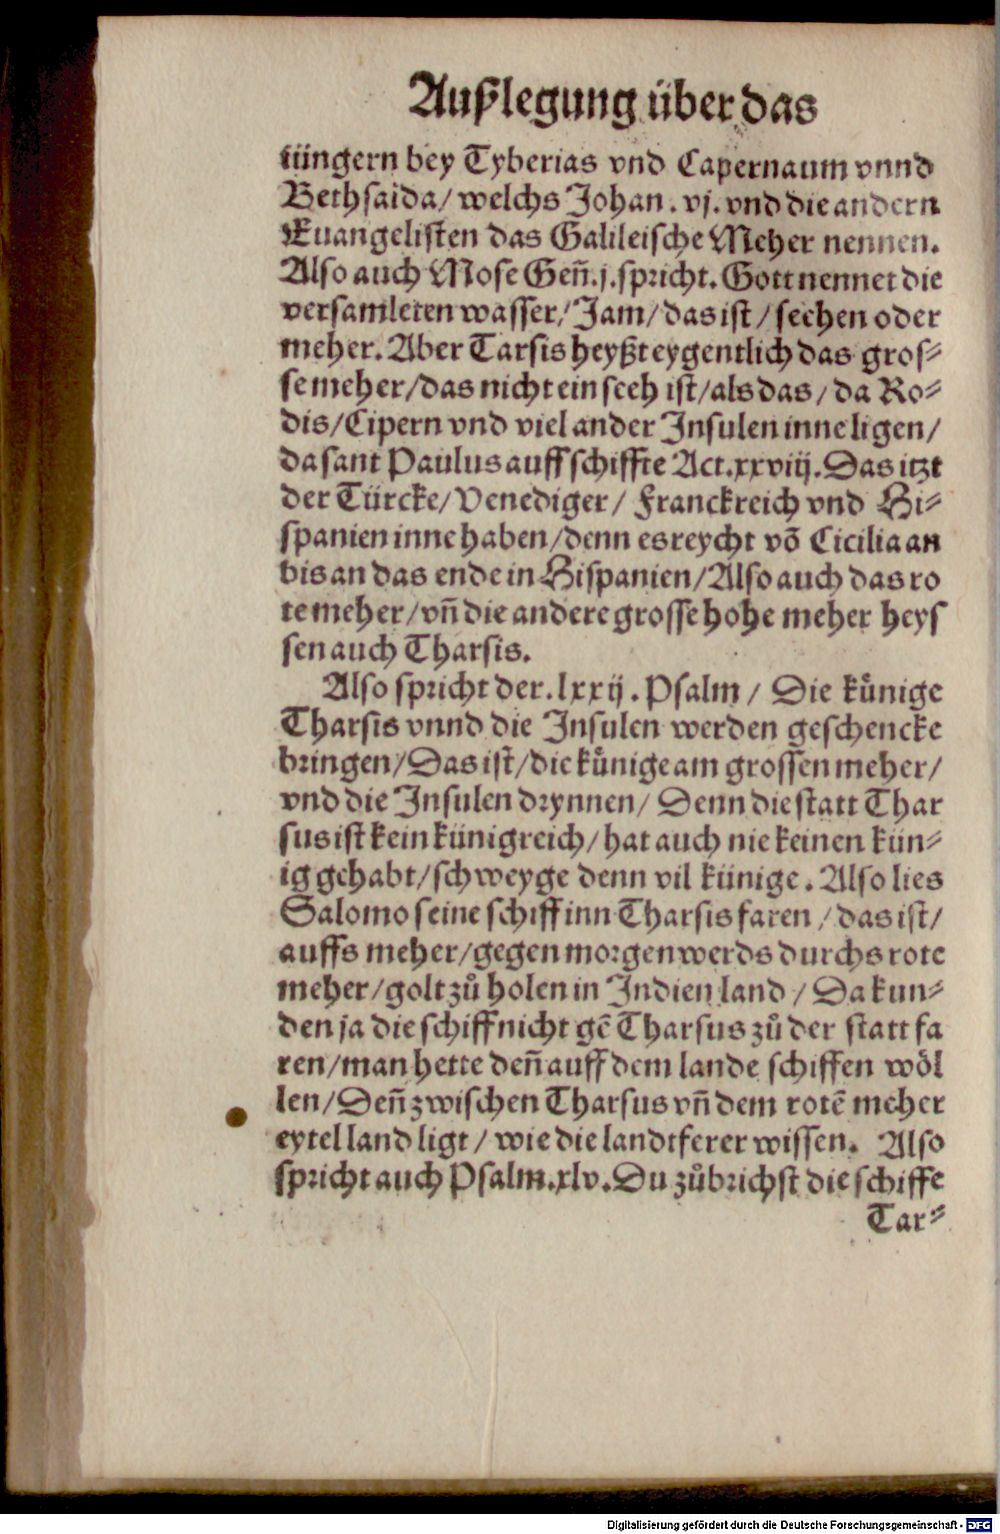 Außlegung über das
iüngern bey Tyberias vnd Capernaum vnnd
Bethsaida/ welchs Johan. vj. vnd die andern
Euangelisten das Galileische Meher nennen.
Also auch Mose Geñ. j. spricht. Gott nennet die
versamleten wasser/ Jam/ das ist/ seehen oder
meher. Aber Tarsis heyßt eygentlich das gros⸗
se meher/ das nicht ein seeh ist/ als das/ da Ro⸗
dis/ Cipern vnd viel ander Insulen inne ligen/
da sant Paulus auff schiffte Act. xxviij. Das itzt
der Türcke/ Venediger/ Franckreich vnd Hi⸗
spanien inne haben/ denn es reycht võ Cicilia an
bis an das ende in Hispanien/ Also auch das ro
te meher/ vñ die andere grosse hohe meher heys
sen auch Tharsis.
Also spricht der. lxxij. Psalm/ Die künige
Tharsis vnnd die Insulen werden geschencke
bringen/ Das ist/ die künige am grossen meher/
vnd die Insulen drynnen/ Denn die statt Thar
sus ist kein künigreich/ hat auch nie keinen kün⸗
ig gehabt/ schweyge denn vil künige. Also lies
Salomo seine schiff inn Tharsis faren/ das ist/
auffs meher/ gegen morgenwerds durchs rote
meher/ golt zů holen in Indien land/ Da kun⸗
den ja die schiff nicht gẽ Tharsus zů der statt fa
ren/ man hette deñ auff dem lande schiffen wöl
len/ Deñ zwischen Tharsus vñ dem rotẽ meher
eytel land ligt/ wie die landtferer wissen. Also
spricht auch Psalm. xlv. Du zůbrichst die schiffe
Tar⸗
Digitalisierung gefördert durch die Deutsche Forschungsgemeinschaft - DFG